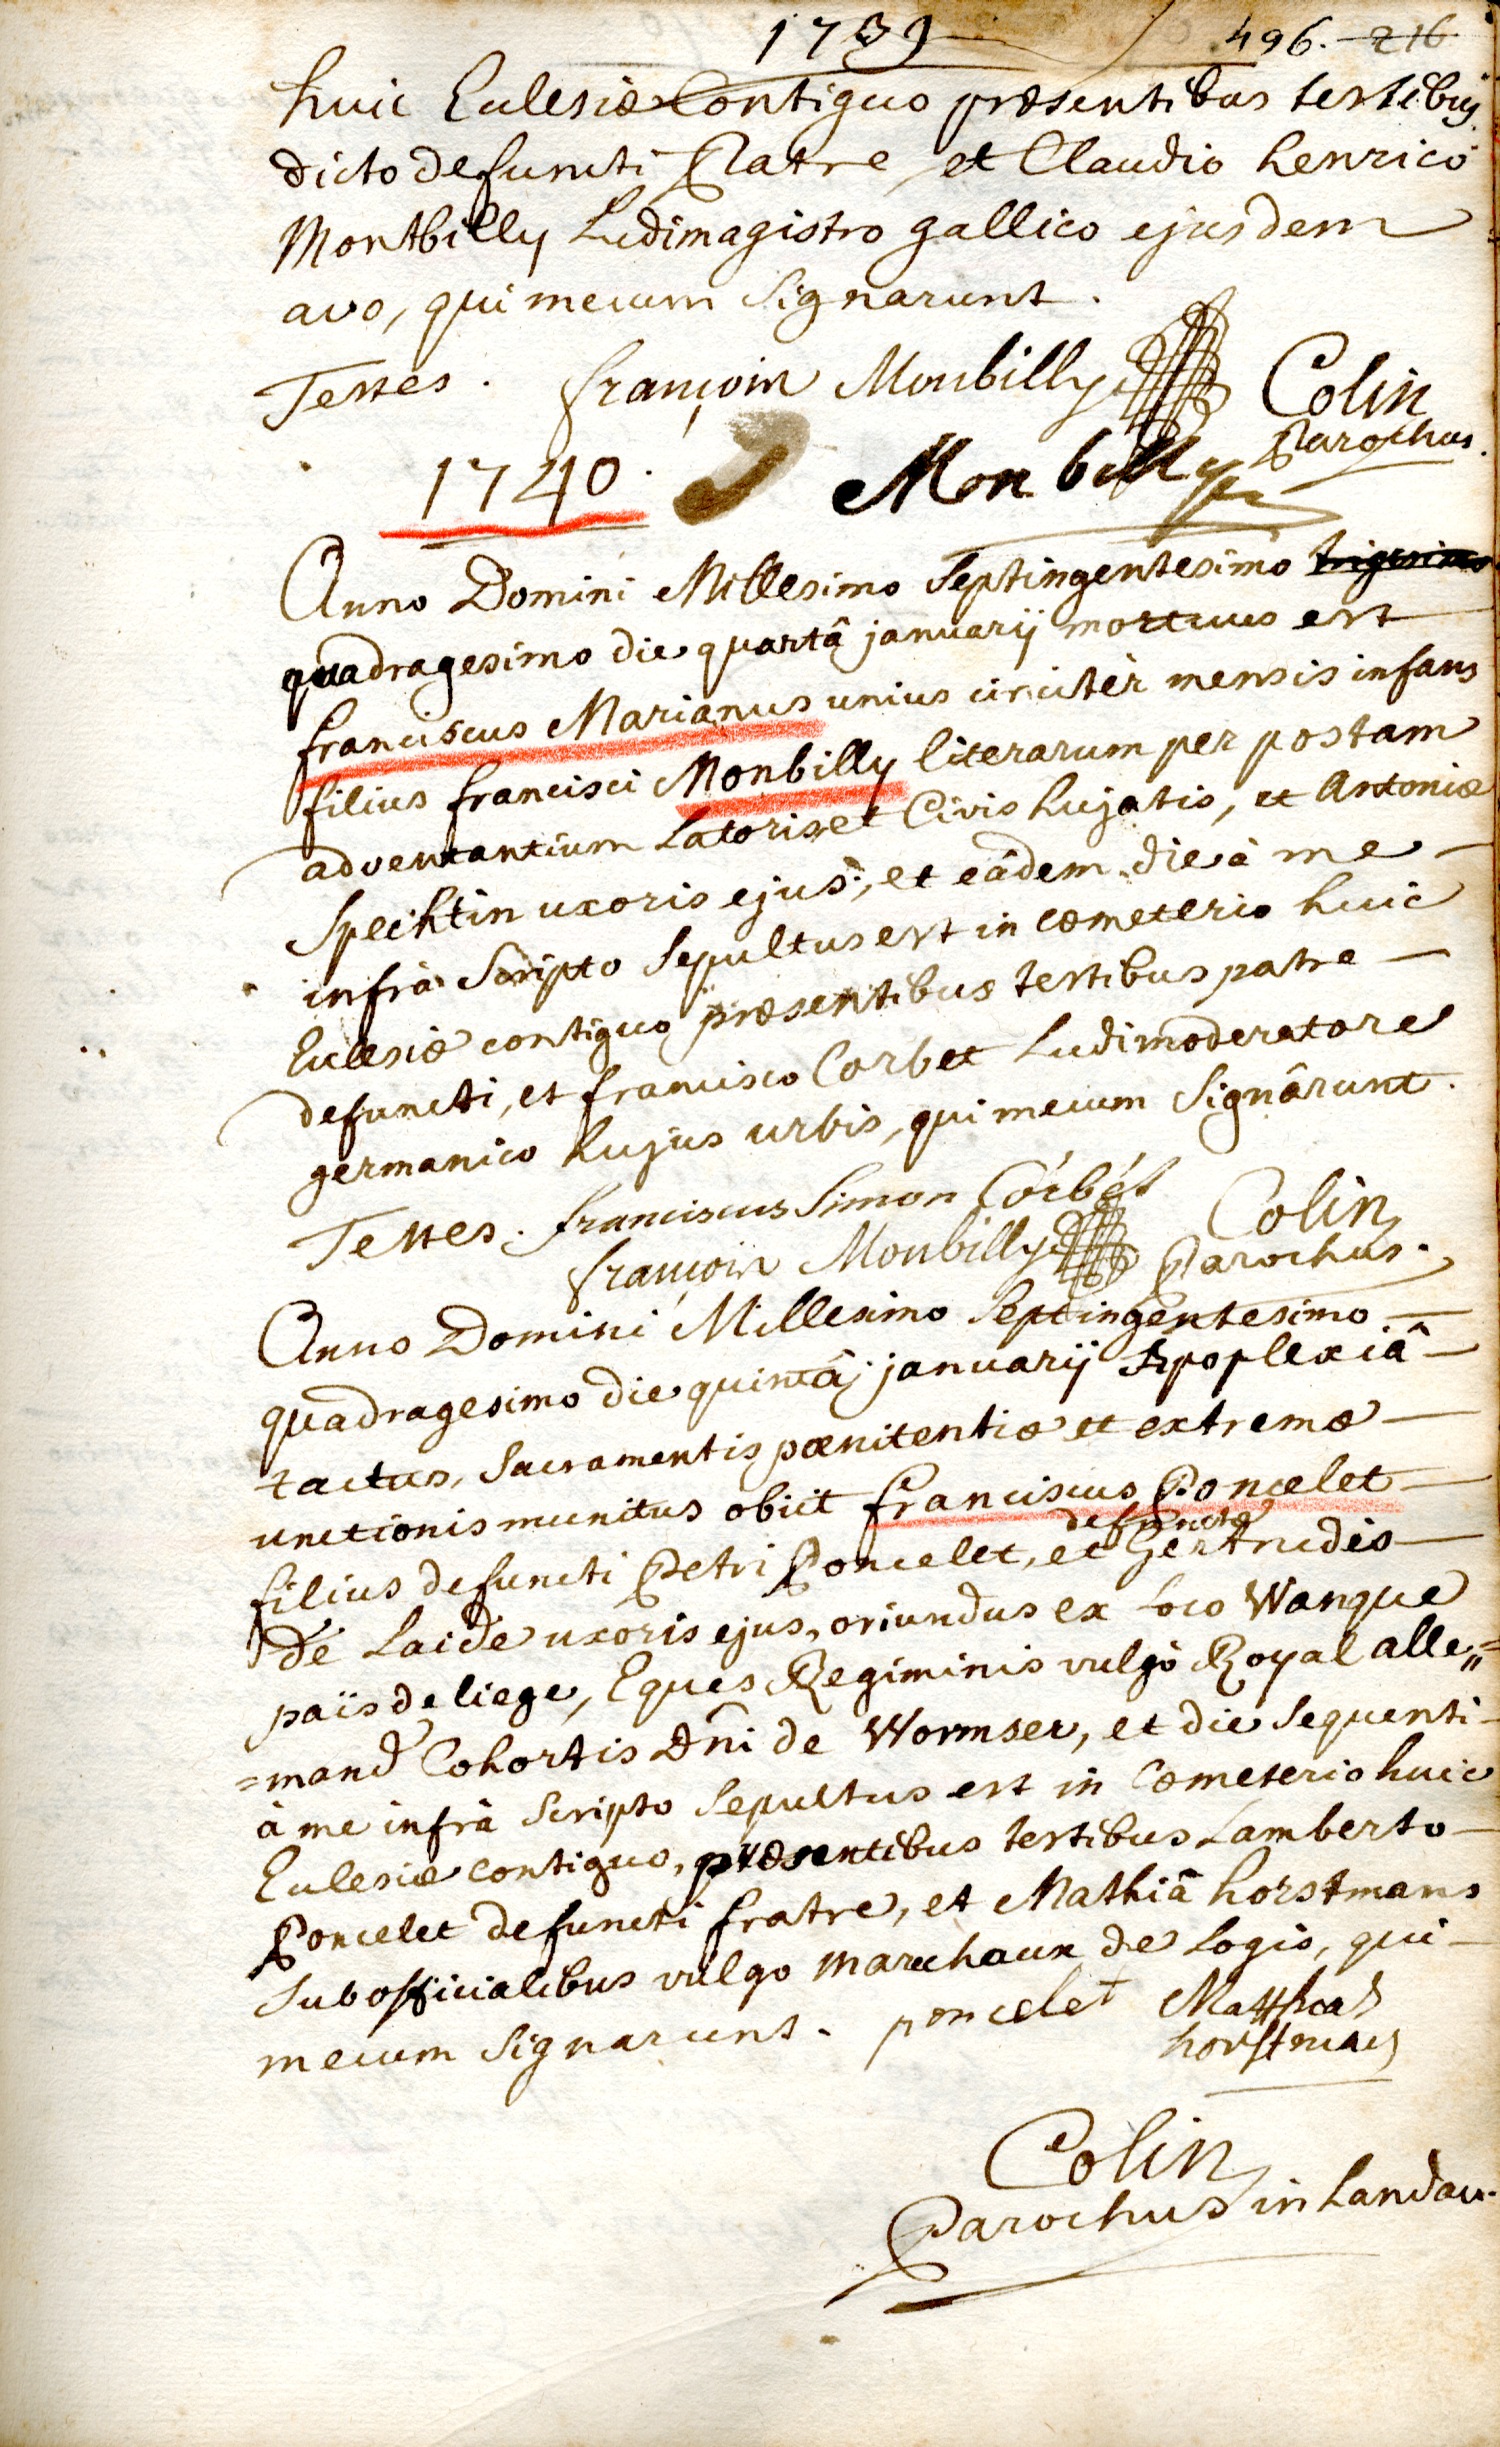 1739 496. 216
huic Eclesiæ Contiguo præsentibus testibus
dicto defuncti Patre et Claudio henrico
Montbilly Ludimagistro gallico ejusdem
avo, qui mecum signarunt.
Testes. françois Monbilly Colin
Parochus.
1740. Monbilly
Anno Domini Millesimo Septingentesimo trigesimo
quadragesimo die quartâ januarij mortuus est
franciscus Marianus unius circitèr mensis infans
filius francisci Monbilly literarum per postam
adventantium Latoris et Civis hujatis, et Antoniæ
Spechtin uxoris ejus, et eâdem die à me
infrà scripto sepultus est in cœmeterio huic
Eclesiæ contiguo præsentibus testibus patre
defuncti, et francisco Corbet Ludimoderatore
germanico hujus urbis, qui mecum signârunt.
Testes. franciscus Simon Corbét Colin
françois Monbilly Parochus.
Anno Domini Millesimo Septingentesimo
quadragesimo die quintâ januarij Apoplexiâ
tactus, Sacramentis pœnitentiæ et extremæ
unctionis munitus obiit franciscus Poncelet
defunctæ
filius defuncti Petri Poncelet, et Gertrudis
De Laide uxoris ejus, oriundus ex Loco Wanque
païs de liege, Eques Regiminis vulgò Royal alle„=
=mand Cohortis Dñi de Wormser, et die sequenti
à me infrà scripto sepultus est in Cœmeterio huic
Eclesiæ contiguo, præsentibus testibus Lamberto
Poncelet defuncti fratre, et Mathiâ horstmans
subofficialibus vulgo marechaux de Logis, qui
mecum signarunt. poncelet Matthias
horstmans
Colin
Parochus in Landau.